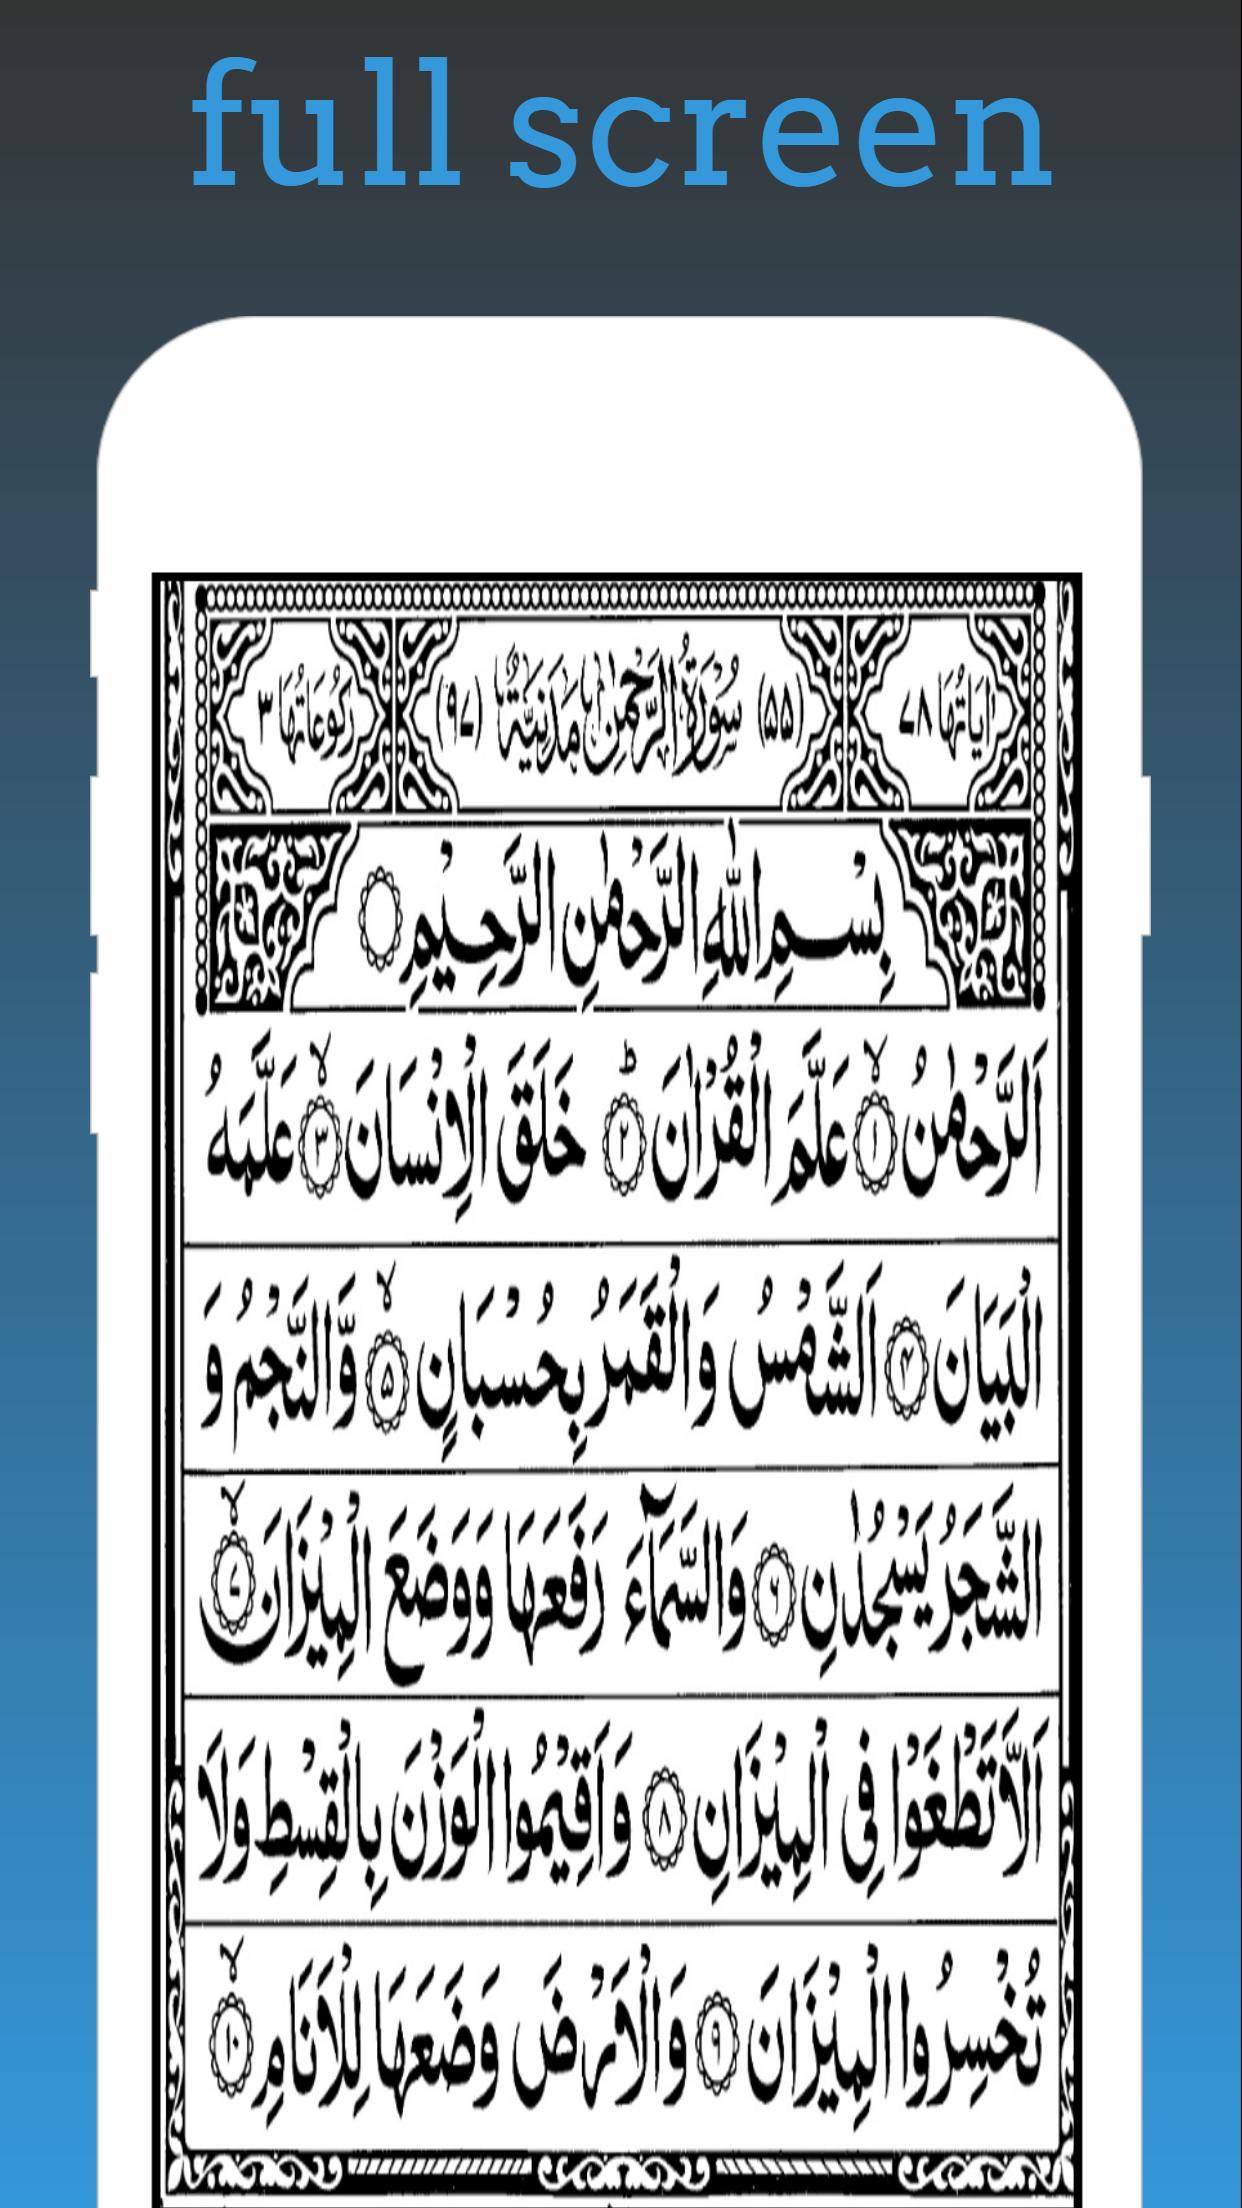 full screen
اٰیَاتُهَا ۷۸ (۵۵) سُوْرَةُ الرَّحْمٰنِ مَدَنِیَّةٌ (۹۷) رُكُوْعَاتُهَا ۳
بِسْمِ اللّٰهِ الرَّحْمٰنِ الرَّحِیْمِ
اَلرَّحْمٰنُ ۙ﴿۱﴾ عَلَّمَ الْقُرْاٰنَ ؕ﴿۲﴾ خَلَقَ الْاِنْسَانَ ۙ﴿۳﴾ عَلَّمَهُ
الْبَیَانَ ﴿۴﴾ اَلشَّمْسُ وَالْقَمَرُ بِحُسْبَانٍ ۙ﴿۵﴾ وَّالنَّجْمُ وَ
الشَّجَرُ یَسْجُدٰنِ ﴿۶﴾ وَالسَّمَآءَ رَفَعَهَا وَوَضَعَ الْمِیْزَانَ ۙ﴿۷﴾
اَلَّا تَطْغَوْا فِی الْمِیْزَانِ ﴿۸﴾ وَاَقِیْمُوا الْوَزْنَ بِالْقِسْطِ وَلَا
تُخْسِرُوا الْمِیْزَانَ ﴿۹﴾ وَالْاَرْضَ وَضَعَهَا لِلْاَنَامِ ۙ﴿۱۰﴾